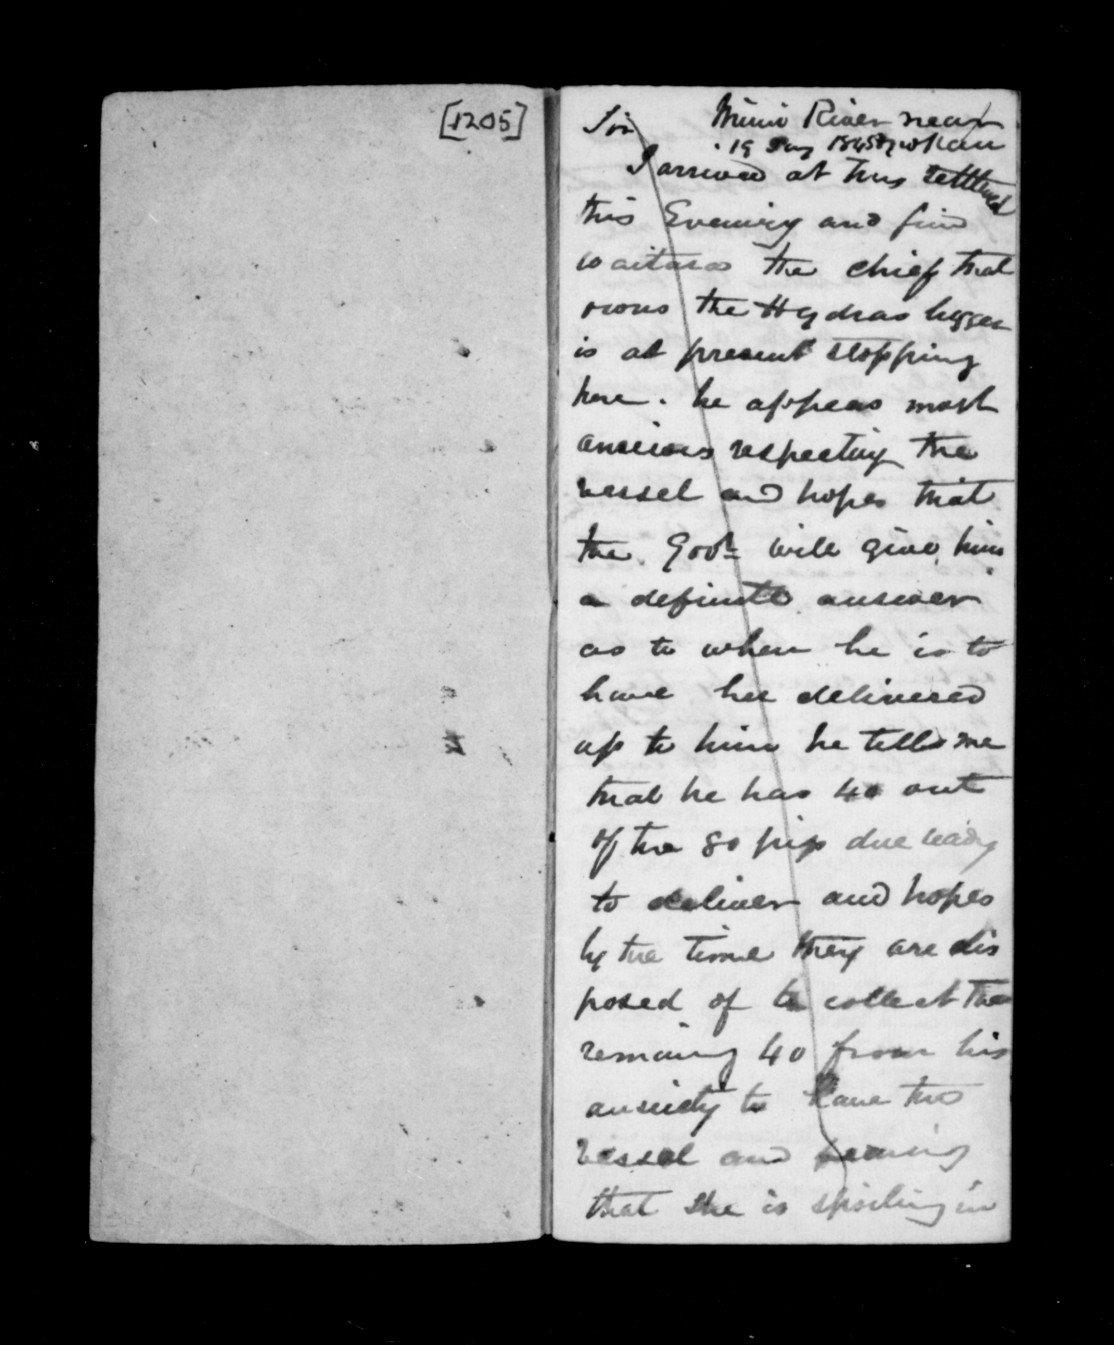 [1205]
Sir Mimi River near
19 1845
I arrived at this settlemt
this Evening and find
waitara the chief that
owns the Hydras bigger
is at present stopping
here. he appeas most
ancious respecting the
vessel and hopes that
the Govr will give him
a definite answer
as to when he is to
have her delivered
up to him he tells me
that he has 40 out
of the 80 pigs due ready
to deliver and hopes
by the time they are dis
posed of to collect the
remaing 40 from his
anxiety to have this
vessel and hearing
that she is spoiling in